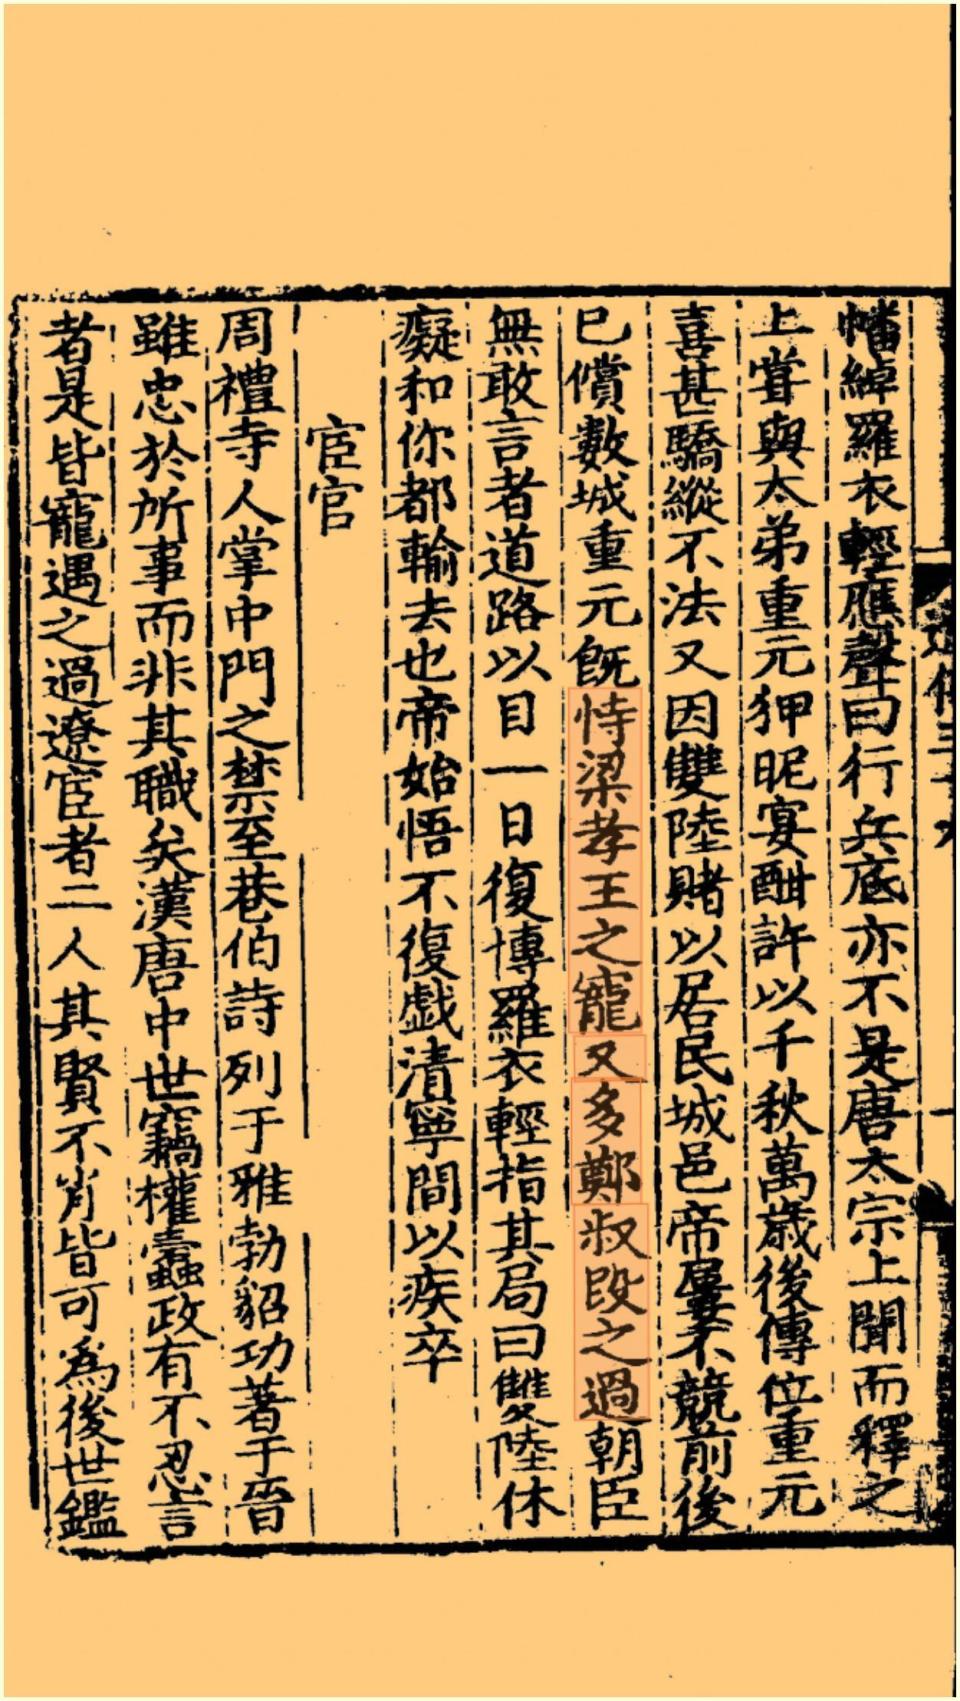 幡綽羅衣輕應聲曰行兵底亦不是唐太宗上聞而釋之
上嘗與太弟重元狎昵宴酣許以千秋萬歲後傳位重元
喜甚驕縱不法又因雙陸賭以居民城邑帝屢不競前後
已償數城重元既恃梁孝王之寵又多鄭叔段之過朝臣
無敢言者道路以目一日復博羅衣輕指其局曰雙陸休
癡和你都輸去也帝始悟不復戲清寧間以疾卒
宦官
周禮寺人掌中門之禁至巷伯詩列于雅勃貂功著于晉
雖忠於所事而非其職矣漢唐中世竊權蠹政有不忍言
者是皆寵遇之過遼宦者二人其賢不肖皆可為後世鑑